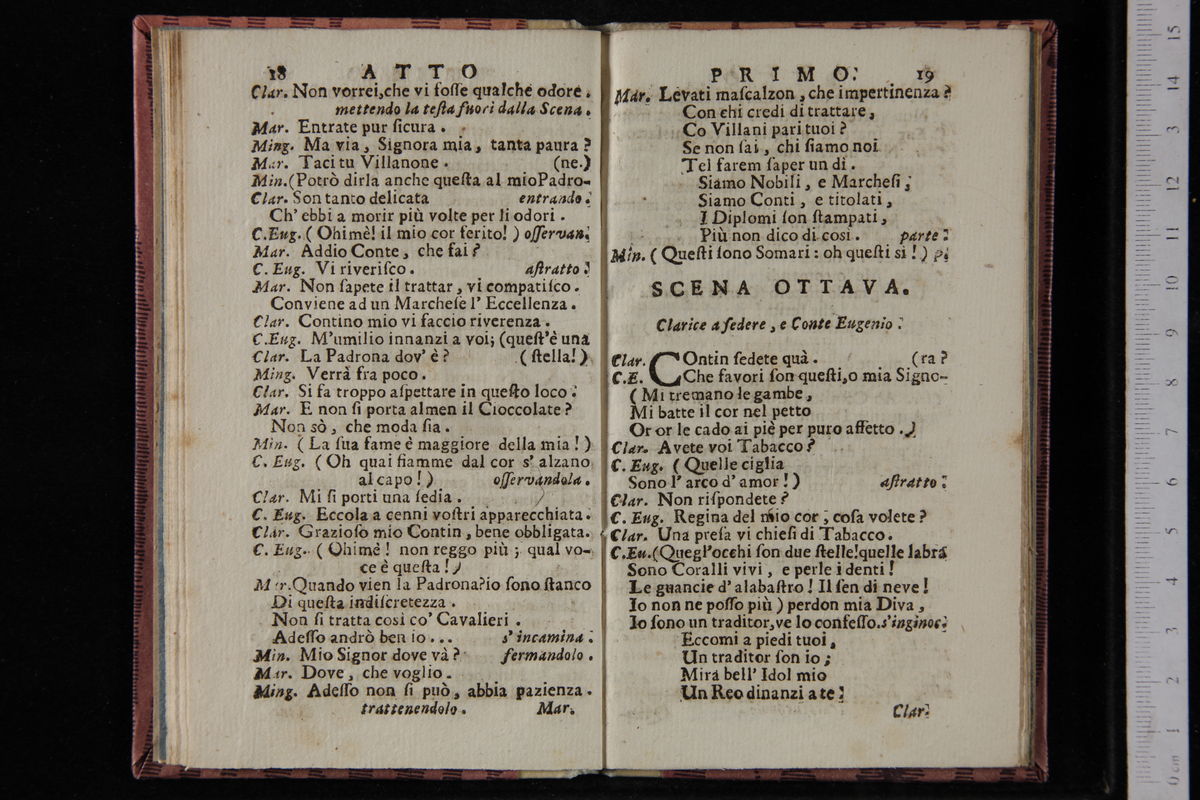 18 ATTO
Clar. Non vorrei, che vi foſſe qualche odore.
mettendo la teſta fuori dalla Scena.
Mar. Entrate pur ſicura.
Ming. Ma via, Signora mia, tanta paura?
Mar. Taci tu Villanone. (ne.)
Min. (Potrò dirla anche queſta al mio Padro-
Clar. Son tanto delicata entrando.
Ch' ebbi a morir più volte per li odori.
C. Eug. (Ohimè! il mio cor ferito!) oſſervan.
Mar. Addio Conte, che fai?
C. Eug. Vi riveriſco. aſtratto.
Mar. Non ſapete il trattar, vi compatiſco.
Conviene ad un Marcheſe l' Eccellenza.
Clar. Contino mio vi faccio riverenza.
C. Eug. M'umilio innanzi a voi; (queſt'è una
Clar. La Padrona dov' è? (ſtella!)
Ming. Verrà fra poco.
Clar. Si fa troppo aſpettare in queſto loco.
Mar. E non ſi porta almen il Cioccolate?
Non sò, che moda ſia.
Min. (La ſua fame è maggiore della mia!)
C. Eug. (Oh quai fiamme dal cor s' alzano
al capo!) oſſervandola.
Clar. Mi ſi porti una ſedia.
C. Eug. Eccola a cenni voſtri apparecchiata.
Clar. Grazioſo mio Contin, bene obbligata.
C. Eug. (Ohimè! non reggo più; qual vo-
ce è queſta!)
Mar. Quando vien la Padrona? io ſono ſtanco
Di queſta indiſcretezza.
Non ſi tratta cosi co' Cavalieri.
Adeſſo andrò ben io... s' incamina.
Min. Mio Signor dove và? fermandolo.
Mar. Dove, che voglio.
Ming. Adeſſo non ſi può, abbia pazienza.
trattenendolo. Mar.
PRIMO. 19
Mar. Levati maſcalzon, che impertinenza?
Con chi credi di trattare,
Co Villani pari tuoi?
Se non ſai, chi ſiamo noi
Tel farem ſaper un dì.
Siamo Nobili, e Marcheſi,
Siamo Conti, e titolati,
I Diplomi ſon ſtampati,
Più non dico di cosi. parte.
Min. (Queſti ſono Somari: oh queſti si!) p.
SCENA OTTAVA.
Clarice a ſedere, e Conte Eugenio.
Clar. COntin ſedete quà. (ra?
C.E. Che favori ſon queſti, o mia Signo-
(Mi tremano le gambe,
Mi batte il cor nel petto
Or or le cado ai piè per puro affetto.)
Clar. Avete voi Tabacco?
C. Eug. (Quelle ciglia
Sono l' arco d' amor!) aſtratto.
Clar. Non riſpondete?
C. Eug. Regina del mio cor, coſa volete?
Clar. Una preſa vi chieſi di Tabacco.
C. Eu. (Quegl'occhi ſon due ſtelle! quelle labra
Sono Coralli vivi, e perle i denti!
Le guancie d' alabaſtro! Il ſen di neve!
Io non ne poſſo più) perdon mia Diva,
Io ſono un traditor, ve lo confeſſo. s'inginoc.
Eccomi a piedi tuoi,
Un traditor ſon io;
Mira bell' Idol mio
Un Reo dinanzi a te.
Clar.
15
14
13
12
11
10
9
8
7
6
5
4
3
2
1
0 cm